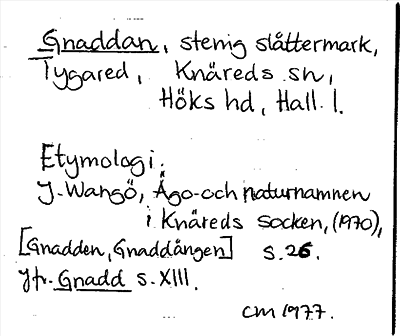 Gnaddan, stenig slåttermark,
Tygared, Knäreds sn,
Höks hd, Hall. l.
Etymologi:
J. Wangö, Ägo- och naturnamnen
i Knäreds socken, (1970),
[Gnadden, Gnaddången] s. 26.
Jfr. Gnadd s. XIII.
CM 1977.